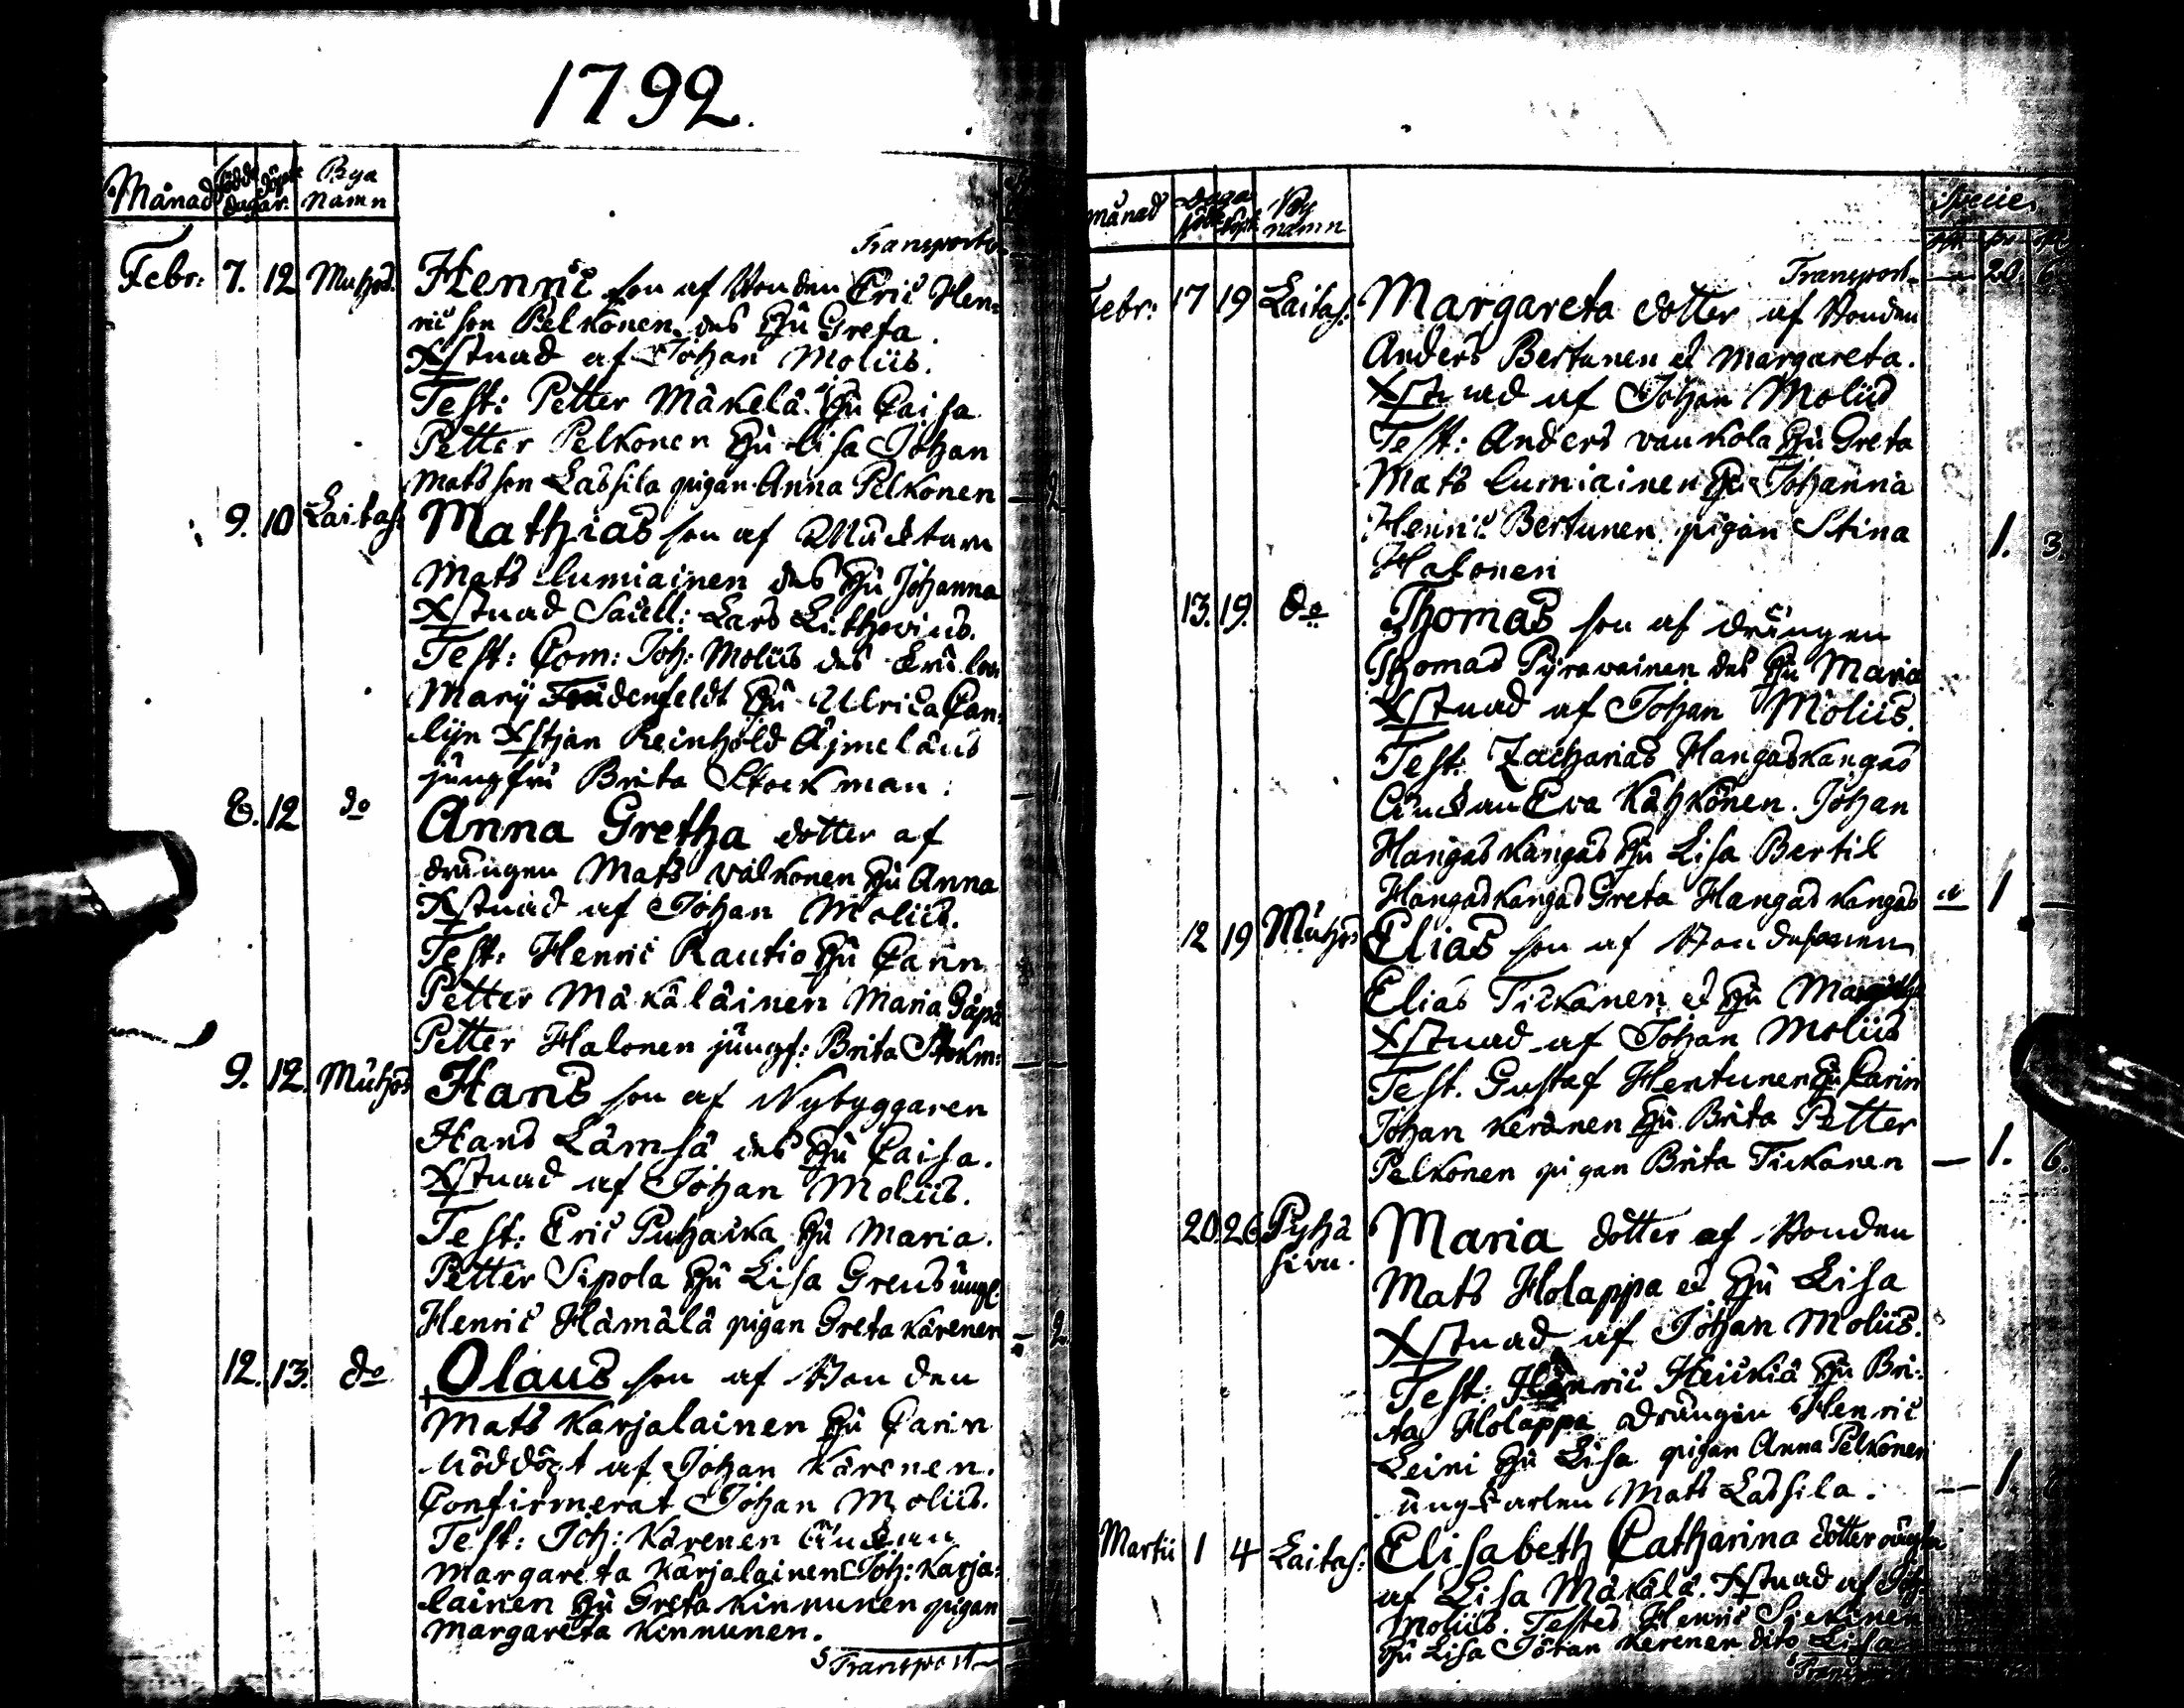 1792.
Månad födde döpte dagar. Bya Namn
Transport
Febr: 7. 12 Muhos. Henric son af Bonden Eric Hen-
ric son Pelkonen des Hu Greta.
Xstnad af Johan Moliis.
Test: Petter Mäkelä. Hu Caisa
Petter Pelkonen Hu Lisa Johan
Matsson Lassila pigan Anna Pelkonen
9. 10 Laitas: Mathias son af
Mats Lumiainen des Hu Johanna
Xstnad Sacell: Lars Lithovius.
Test: Com: Joh: Moliis des
Marij Hu Ulrica Can-
lijn Xstjan Reinhold Ajmelæus
jungfru Brita Stockman.
8. 12 do Anna Gretha dotter af
drängen Mats Valkonen Hu Anna
Xstnad af Johan Moliis.
Test: Henric Rautio Hu Carin
Petter Mäkäläinen Maria
Petter Halonen jungf: Brita Stokm:
9. 12. Muhos Hans son af Nybyggaren
Hans Lämsä des Hu Caisa.
Xstnad af Johan Moliis.
Test: Eric Puhacka Hu Maria.
Petter Sipola Hu Lisa Grens ungl.
Henric Hämälä pigan Greta Kärenen 2
12. 13. do Olaus son af Bonden
Mats Karjalainen Hu Carin
Nöddöpt af Johan Kärenen.
Confirmerat Johan Moliis.
Test: Joh: Kärenen änckan
Margareta Karjalainen Joh: Karja-
lainen Hu Greta Kinnunen pigan
Margareta Kinnunen.
Transport
månad Daga född döpt By namn Specie
Transport 20. 6.
Febr: 17 19 Laitas: Margareta dotter af Bonden
Anders Bertunen et Margareta.
Xstnad af Johan Moliis
Test: Anders Vaukola Hu Greta
Mats Lumiainen Hu Johanna
Henric Bertunen pigan Stina 1. 3.
Halonen
13. 19. do Thomas son af drängen
Thomas Pyravainen des Hu Maria
Xstnad af Johan Moliis.
Test: Zacharias Hangaskangas
änckan Eva Kähkönen. Johan
Hangaskangas Hu Lisa Bertil
Hangaskangas Greta Hangaskangas 1 —
12 19 Muhos Elias son af Bondesonen
Elias Tickanen et Hu
Xstnad af Johan Moliis
Test. Gustaf Hentunen Hu Carin
Johan Keränen Hu Brita Petter
Pelkonen pigan Brita Tickanen — 1. 6.
20. 26. Pyhä sivu. Maria dotter af Bonden
Mats Holappa et Hu Lisa
Xstnad af Johan Moliis.
Test: Henric Heickiä Hu Bri-
ta Holappa drängen Henric
Leini Hu Lisa pigan Anna Pelkonen
ungkarlen Mats Lassila. — 1.
Martii 1 4 Laitas: Elisabeth Catharina dotter
af Lisa Mäkälä. Xstnad af Joh:
Moliis. Testes Henric
Hu Lisa Johan Kerenen dito Lisa